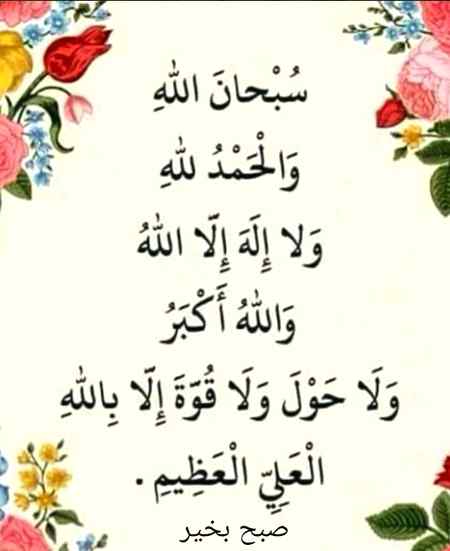 سُبْحانَ اللهِ
وَالْحَمْدُ للهِ
وَلا إِلَهَ إِلّا اللهُ
وَاللهُ أَكْبَرُ
وَلَا حَوْلَ وَلَا قُوَّةَ إِلّا بِاللهِ
الْعَلِيِّ الْعَظِيمِ .
صبح بخیر